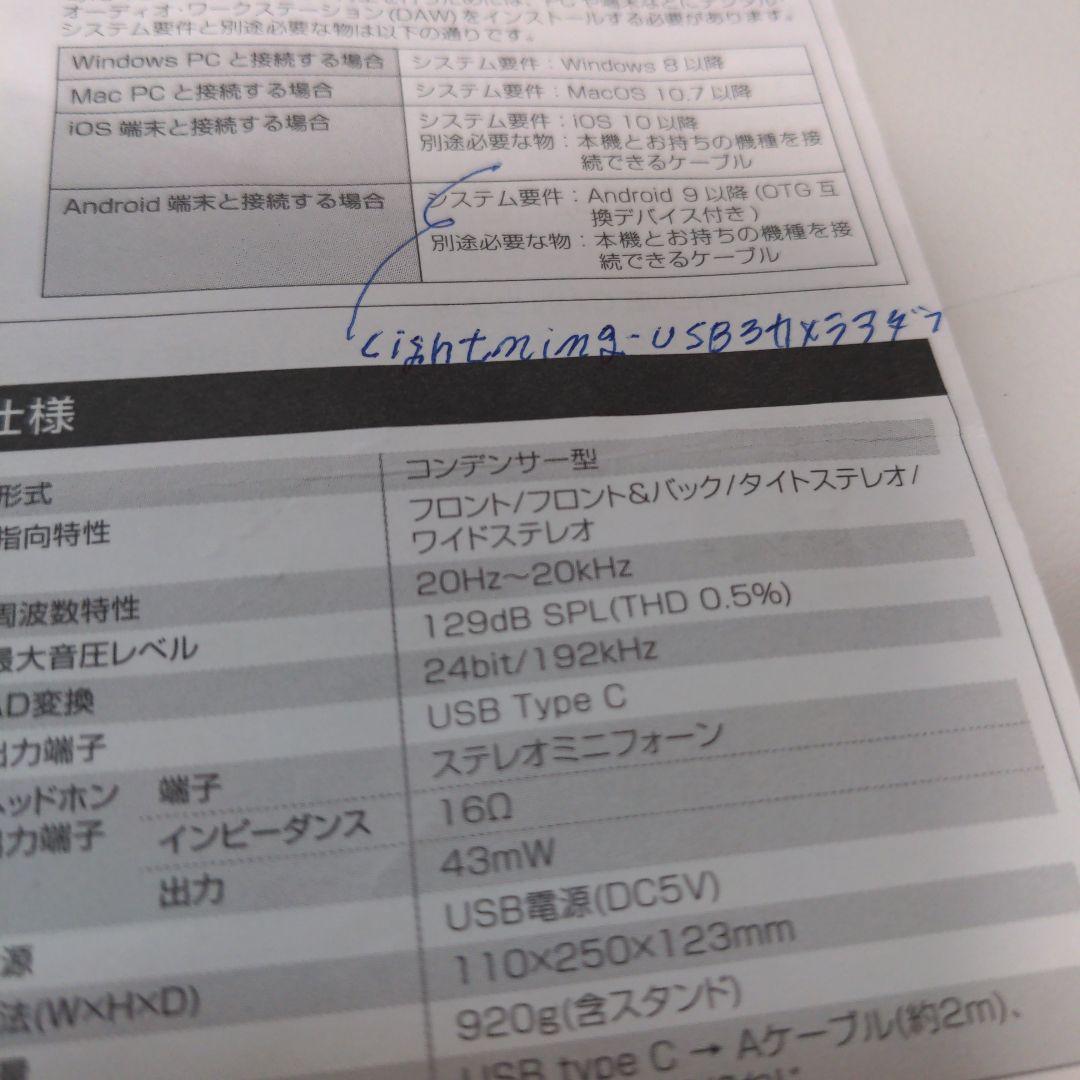 オーディオ・ワークステーション(DAW)をインストールする必要があります。
システム要件と別途必要な物は以下の通りです。
Windows PC と接続する場合 システム要件：Windows 8 以降
Mac PC と接続する場合 システム要件：MacOS 10.7 以降
iOS 端末と接続する場合 システム要件：iOS 10 以降
別途必要な物：本機とお持ちの機種を接
続できるケーブル
Android 端末と接続する場合 システム要件：Android 9 以降 (OTG 互
換デバイス付き)
別途必要な物：本機とお持ちの機種を接
続できるケーブル
Lightning-USB3カメラアダプ
仕様
形式 コンデンサー型
指向特性 フロント/フロント&バック/タイトステレオ/
ワイドステレオ
周波数特性 20Hz〜20kHz
最大音圧レベル 129dB SPL(THD 0.5%)
AD変換 24bit/192kHz
出力端子 USB Type C
ヘッドホン 端子 ステレオミニフォーン
出力端子 インピーダンス 16Ω
出力 43mW
源 USB電源(DC5V)
法(W×H×D) 110×250×123mm
量 920g(含スタンド)
USB type C → Aケーブル(約2m)、